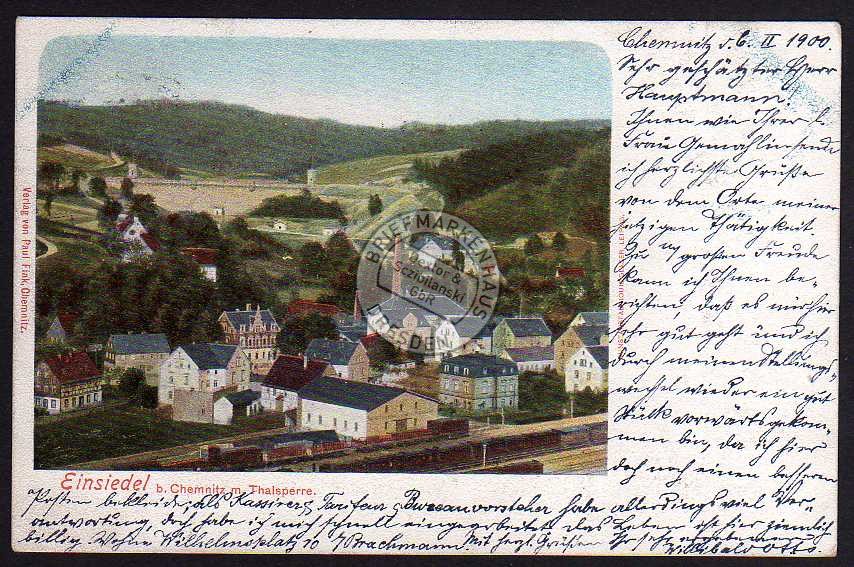 Chemnitz d. 6. II 1900.
Sehr geschätzter Herr
Hauptmann!
Ihnen wie Ihrer l.
Frau Gemahlin sende
ich herzlichste Grüße
von dem Orte meiner
jetzigen Thätigkeit.
Zu m/ großen Freude
kann ich Ihnen be-
richten, daß es mir hier
sehr gut geht und ich
durch meinen Stellungs-
wechsel wieder ein gut
Stück vorwärts gekom-
men bin, da ich hier
doch noch einen besseren
Posten bekleide, als Kassirer, Tarifeur, Bureauvorsteher habe allerdings viel Ver-
antwortung, doch habe ich mich schnell eingearbeitet das Leben ist hier ziemlich
billig. Wohne Wilhelmsplatz 10 b/ Brachmann. Mit herzl. Grüßen Ihr sehr ergebener
Willibald Otto.
Verlag von Paul Fink, Chemnitz.
Einsiedel b. Chemnitz m. Thalsperre.
BRIEFMARKENHAUS
Wetlor & Sczibilanski GbR
DRESDEN